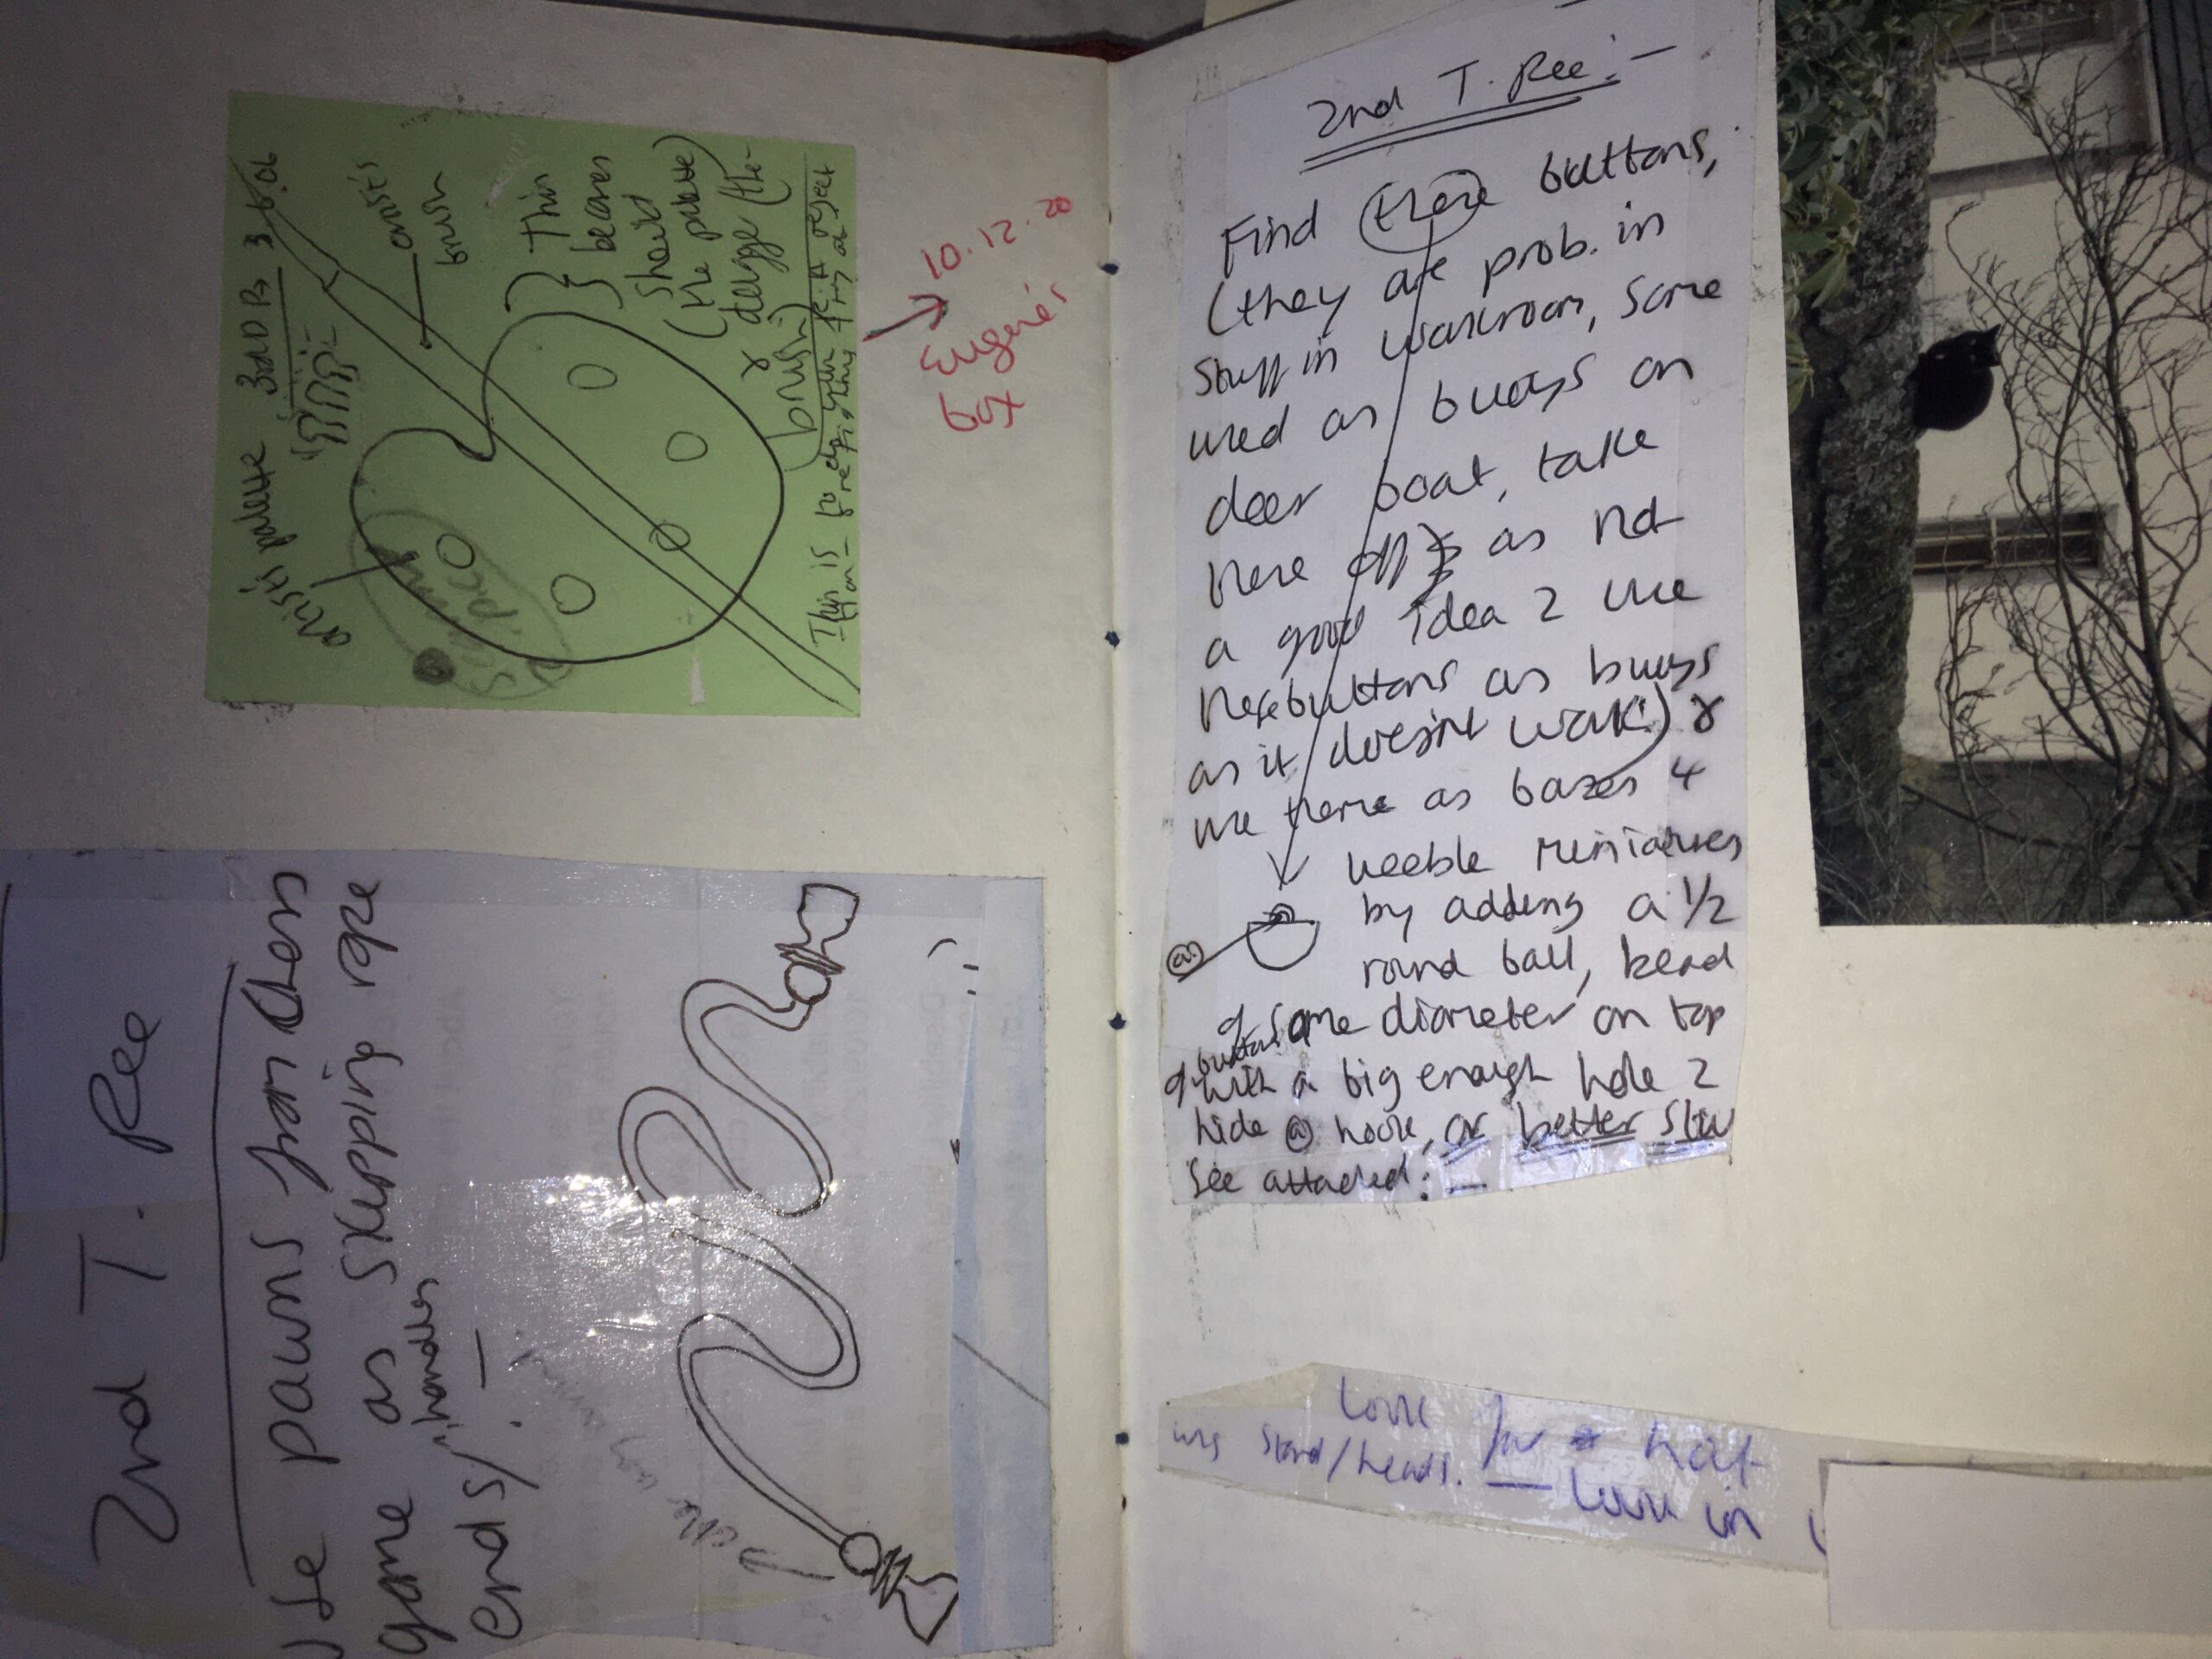 2nd T. Ree
Use pawns from chess
game as skipping rope
ends/"handles
artist's palette
3rd DB
3.5.06
artist's
brush
} This
becomes
shield
(the palette)
& (the
brush)
This is
10.12.20
Eugene's
box
2nd T. Ree:-
Find these buttons,
(they are prob. in
stuff in workroom, some
used as buoys on
deer boat, take
these off as not
a good idea 2 use
these buttons as buoys
as it doesn't work!) &
use them as bases 4
weeble miniatures
by adding a 1/2
round ball, bead
of same diameter on top
of buttons
with a big enough hole 2
hide @ hook, or better still
see attached:-
@
Look for hat
wig stand/heads. — Look in